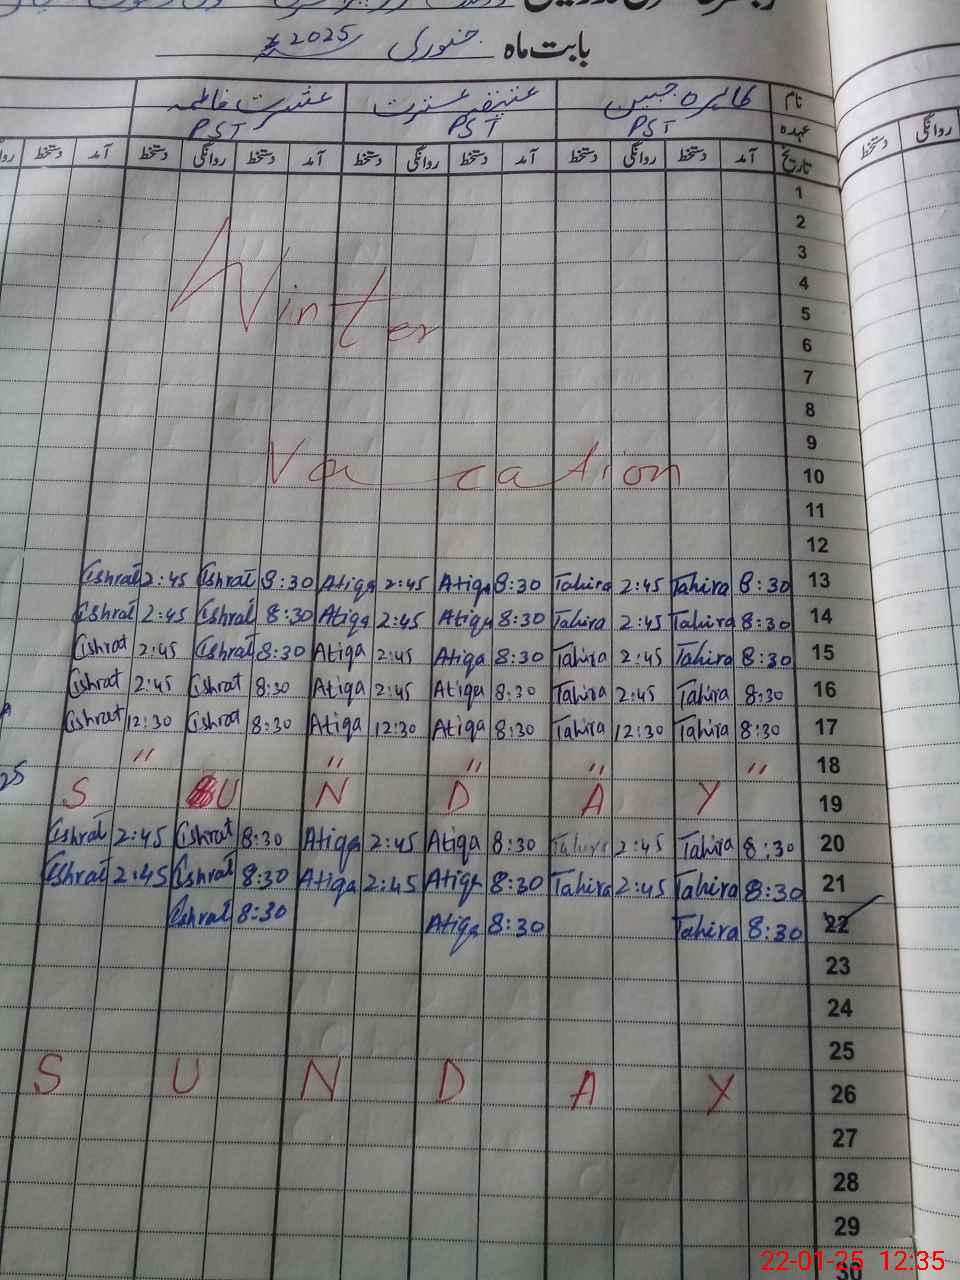 بابت ماہ جنوری 2025
نام طاہرہ جبیں عتیقہ عشرت عشرت فاطمہ
عہدہ PST PST PST
تاریخ آمد دستخط روانگی دستخط آمد دستخط روانگی دستخط آمد دستخط روانگی دستخط آمد دستخط
روانگی دستخط
1
2
3
4
Winter
5
6
7
8
9
Vacation
10
11
12
Ishrat 2:45 Ishrat 8:30 Atiqa 2:45 Atiqa 8:30 Tahira 2:45 Tahira 8:30 13
Ishrat 2:45 Ishrat 8:30 Atiqa 2:45 Atiqa 8:30 Tahira 2:45 Tahira 8:30 14
Ishrat 2:45 Ishrat 8:30 Atiqa 2:45 Atiqa 8:30 Tahira 2:45 Tahira 8:30 15
Ishrat 2:45 Ishrat 8:30 Atiqa 2:45 Atiqa 8:30 Tahira 2:45 Tahira 8:30 16
Ishrat 12:30 Ishrat 8:30 Atiqa 12:30 Atiqa 8:30 Tahira 12:30 Tahira 8:30 17
" " " " " 18
S U N D A Y 19
Ishrat 2:45 Ishrat 8:30 Atiqa 2:45 Atiqa 8:30 Tahira 2:45 Tahira 8:30 20
Ishrat 2:45 Ishrat 8:30 Atiqa 2:45 Atiqa 8:30 Tahira 2:45 Tahira 8:30 21
Ishrat 8:30 Atiqa 8:30 Tahira 8:30 22
23
24
25
S U N D A Y 26
27
28
29
30
22-01-25 12:35